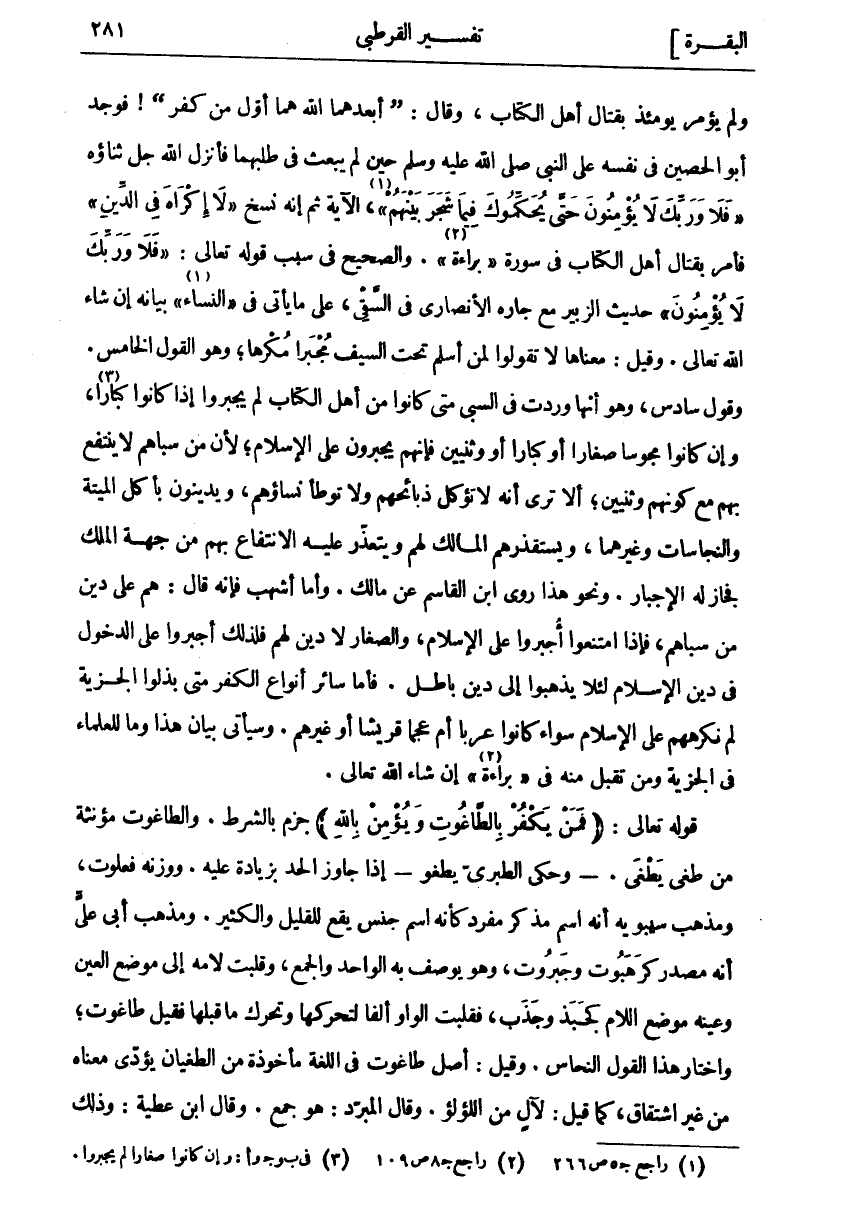 البقـــرة ] تفســـير القرطبى ٢٨١
ولم يؤمر يومئذ بقتال أهل الكتاب ، وقال : ” أبعدهما الله هما أوّل من كفر “ ! فوجد
أبو الحصين فى نفسه على النبى صلى الله عليه وسلم حين لم يبعث فى طلبهما فأنزل الله جل ثناؤه
« فَلَا وَرَبِّكَ لَا يُؤْمِنُونَ حَتَّى يُحَكِّمُوكَ فِيمَا شَجَرَ بَيْنَهُمْ(١)»، الآية ثم إنه نسخ «لَا إِكْرَاهَ فِى الدِّينِ»
فأمر بقتال أهل الكتاب فى سورة « براءة(٢) » . والصحيح فى سبب قوله تعالى : «فَلَا وَرَبِّكَ
لَا يُؤْمِنُونَ» حديث الزبير مع جاره الأنصارى فى السَّقْىِ ، على مايأتى فى «النساء(١)» بيانه إن شاء
الله تعالى . وقيل : معناها لا تقولوا لمن أسلم تحت السيف مُجْبَرا مُكْرها؛ وهو القول الخامس.
وقول سادس، وهو أنها وردت فى السبى متى كانوا من أهل الكتاب لم يجبروا إذا كانوا كبارا(٣)،
وإن كانوا مجوسا صغارا أو كبارا أو وثنيين فإنهم يجبرون على الإسلام؛ لأن من سباهم لاينتفع
بهم مع كونهم وثنيين؛ ألا ترى أنه لاتؤكل ذبائحهم ولا توطأ نساؤهم، ويدينون بأكل الميتة
والنجاسات وغيرهما ، ويستقذرهم المـالك لهم ويتعذّر عليـه الانتفاع بهم من جهـة الملك
فجاز له الإجبار . ونحو هذا روى ابن القاسم عن مالك . وأما أشهب فإنه قال : هم على دين
من سباهم، فإذا امتنعوا أُجبروا على الإسلام، والصغار لا دين لهم فلذلك أجبروا على الدخول
فى دين الإسـلام لئلا يذهبوا إلى دين باطـل . فأما سائر أنواع الكفر متى بذلوا الجـزية
لم نكرههم على الإسلام سواء كانوا عربا أم عجما قريشا أو غيرهم . وسيأتى بيان هذا وما للعلماء
فى الجزية ومن تقبل منه فى « براءة(٢)» إن شاء الله تعالى .
قوله تعالى : ﴿ فَمَنْ يَكْفُرْ بِالطَّاغُوتِ وَيُؤْمِنْ بِاللهِ ﴾ جزم بالشرط . والطاغوت مؤنثة
من طغى يَطْغَى . — وحكى الطبرىّ يطغو — إذا جاوز الحد بزيادة عليه . ووزنه فعلوت،
ومذهب سيبويه أنه اسم مذكر مفرد كأنه اسم جنس يقع للقليل والكثير . ومذهب أبى علىّ
أنه مصدر كرَهَبُوت وجَبَرُوت، وهو يوصف به الواحد والجمع، وقلبت لامه إلى موضع العين
وعينه موضع اللام كجَبَذ وجَذَب، فقلبت الواو ألفا لتحركها وتحرك ماقبلها فقيل طاغوت؛
واختار هذا القول النحاس . وقيل : أصل طاغوت فى اللغة مأخوذة من الطغيان يؤدّى معناه
من غير اشتقاق، كما قيل : لآلٍ من اللؤلؤ . وقال المبرّد : هو جمع . وقال ابن عطية : وذلك
(١) راجع جـ٥ ص٢٦٦ (٢) راجع جـ٨ ص١٠٩ (٣) فى ب وجـ وأ : وإن كانوا صغارا لم يجبروا.